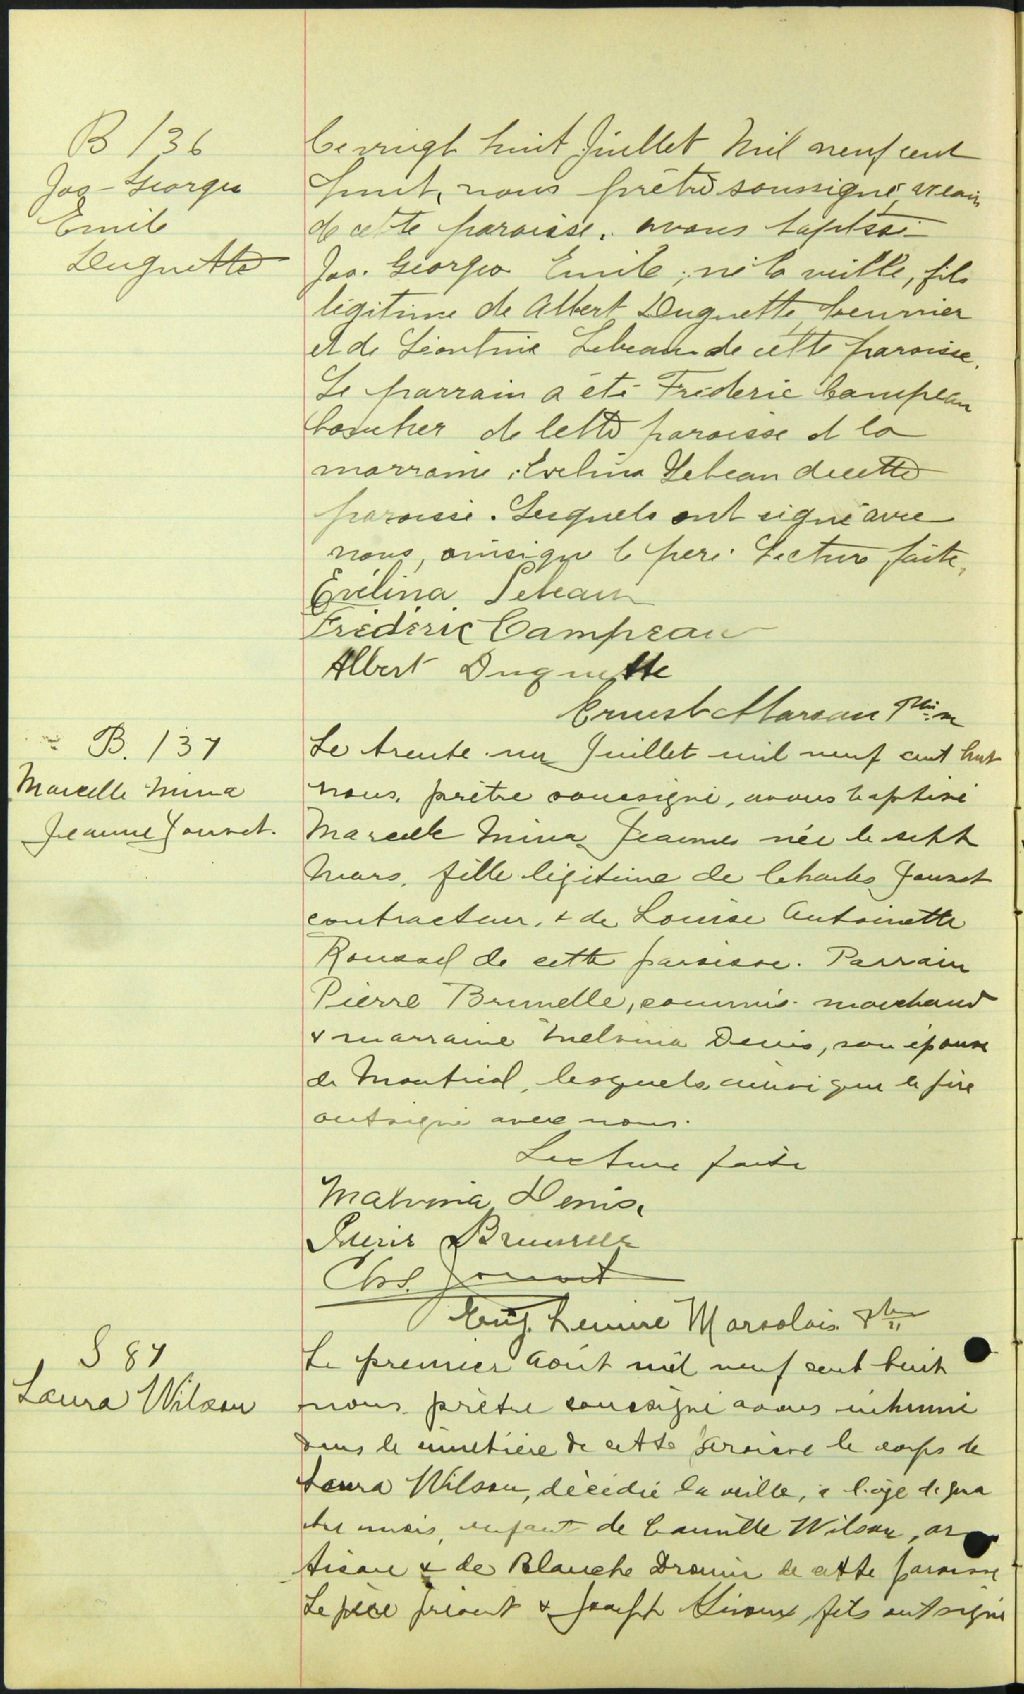 B 136
Jos-Georges
Emile
Duguette
Ce vingt huit Juillet Mil neuf cent
huit, nous prêtre soussigné, vicaire
de cette paroisse, avons baptisé
Jos. Georges Emile, né la veille, fils
légitime de Albert Duguette,
et de Léontine Lebeau de cette paroisse.
Le parrain a été Frédéric Campeau
boucher de cette paroisse et la
marraine Evelina Lebeau de cette
paroisse. Lesquels ont signé avec
nous, ainsi que le père. Lecture faite,
Evélina Lebeau
Frédéric Campeau
Albert Duquette
Ernest Marsan ptre
B. 137
Marcelle Mina
Jeanne Jouvet.
Le trente un Juillet mil neuf cent huit
nous, prêtre soussigné, avons baptisé
Marcelle Mina Jeanne née le sept
Mars, fille légitime de Charles Jouvet
contracteur, & de Louise Antoinette
Roussel de cette paroisse. Parrain
Pierre Brunelle, commis-marchand
& marraine Melvina Denis, son épouse
de Montréal, lesquels ainsi que le père
ont signé avec nous.
Lecture faite
Malvina Denis,
Pierre Brunelle
Chs. Jouvet
Eug. Lemire Marsolais ptre
S 87
Laura Wilson
Le premier Août mil neuf cent huit
nous prêtre soussigné avons inhumé
dans le cimetière de cette paroisse le corps de
Laura Wilson, décédée la veille, à l'âge de qua
tre mois, enfant de Camille Wilson, ar
tisan & de Blanche Drouin de cette paroisse
Le père présent & Joseph Giroux, fils ont signé